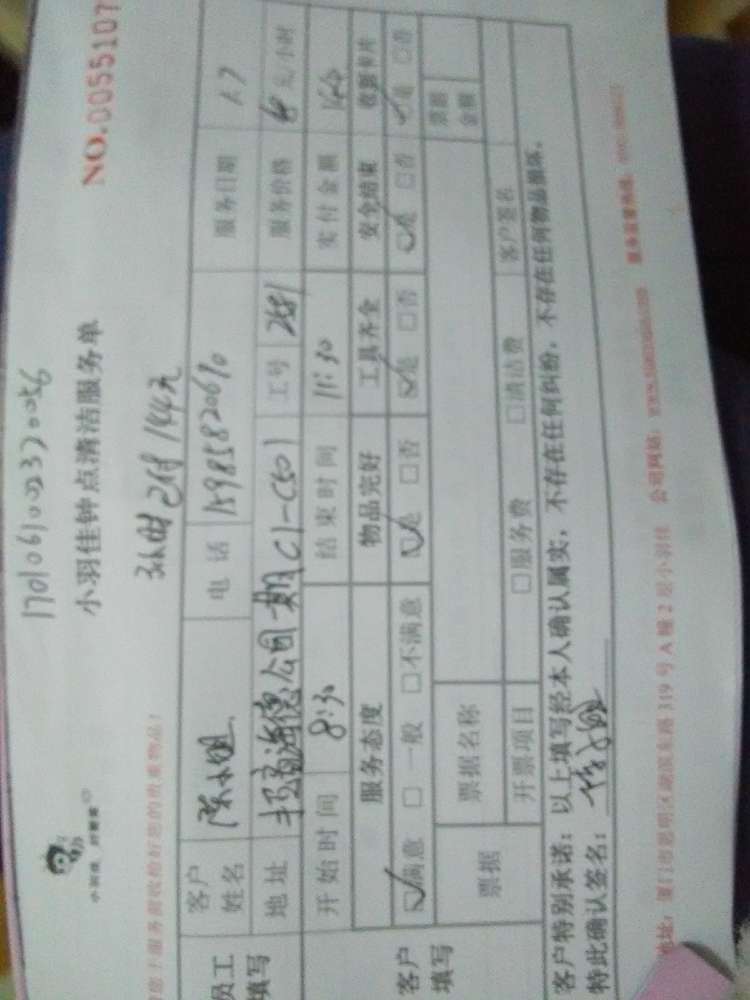 1701061003370056
小羽佳钟点清洁服务单
NO.0055107
小羽佳
3小时已付144元
员工填写
客户姓名 陈小姐 电话 15985820610 服务日期 1.7
地址 招商海德公园一期C1-C501 工号 2681 服务价格 元/小时
开始时间 8:30 结束时间 11:30 实付金额 144
客户填写
服务态度 物品完好 工具齐全 安全结束 收到卡片
☑满意 □一般 □不满意 ☑是 □否 ☑是 □否 ☑是 □否 ☑是 □否
票据 票据名称 票据金额
开票项目 □服务费 □清洁费 客户签名
客户特别承诺：以上填写经本人确认属实，不存在任何纠纷，不存在任何物品损坏。
特此确认签名：
地址：厦门市思明区湖滨东路319号A幢2层小羽佳 公司网站： 服务监督热线：